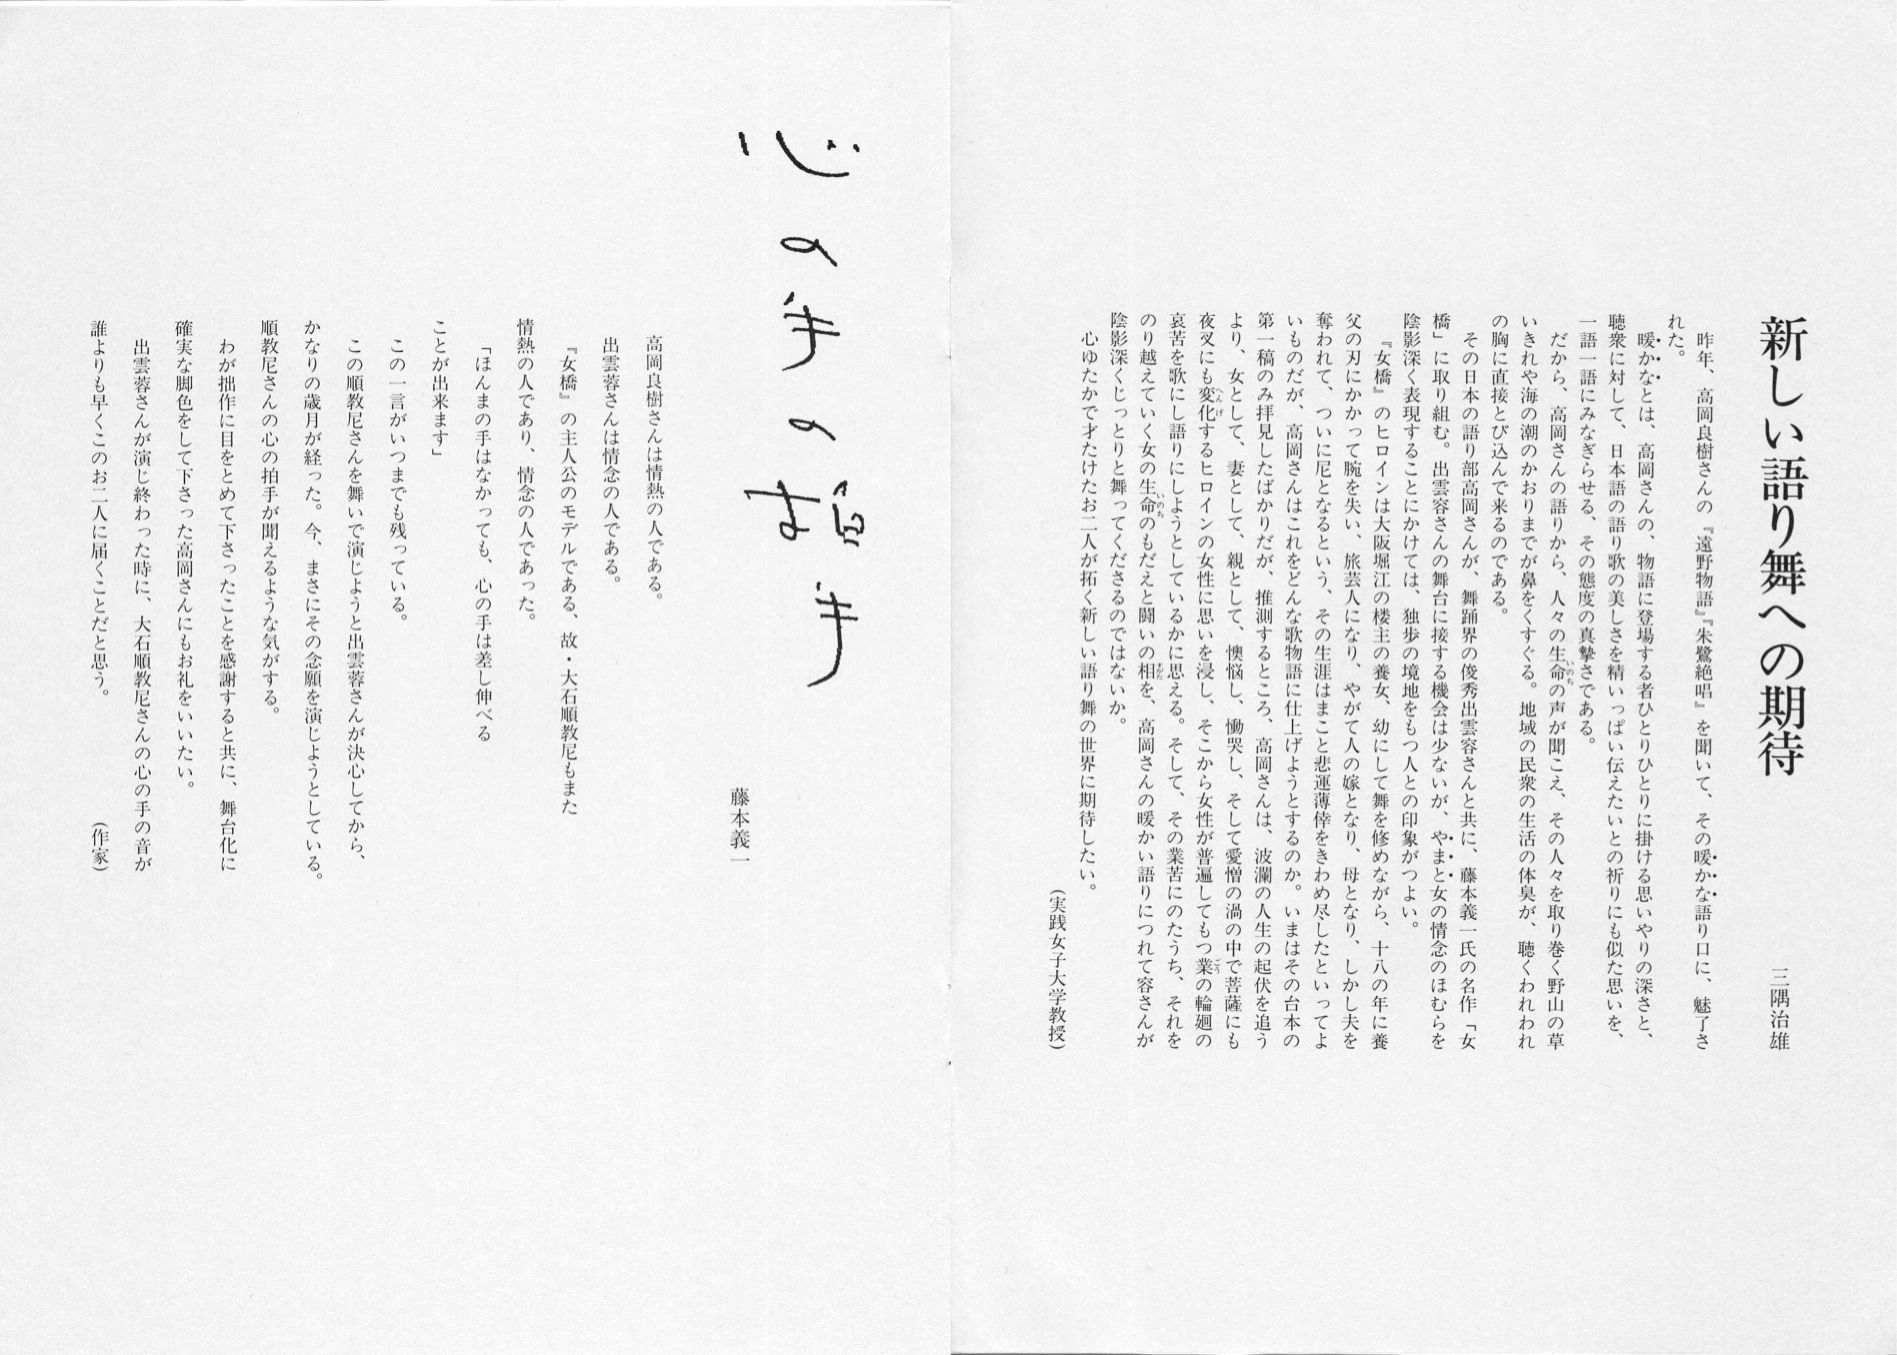 新しい語り舞への期待
三隅治雄
昨年、高岡良樹さんの『遠野物語』『朱鷺絶唱』を聞いて、その暖かな語り口に、魅了さ
れた。
暖かなとは、高岡さんの、物語に登場する者ひとりひとりに掛ける思いやりの深さと、
聴衆に対して、日本語の語り歌の美しさを精いっぱい伝えたいとの祈りにも似た思いを、
一語一語にみなぎらせる、その態度の真摯さである。
だから、高岡さんの語りから、人々の生命の声が聞こえ、その人々を取り巻く野山の草
いきれや海の潮のかおりまでが鼻をくすぐる。地域の民衆の生活の体臭が、聴くわれわれ
の胸に直接とび込んで来るのである。
その日本の語り部高岡さんが、舞踊界の俊秀出雲容さんと共に、藤本義一氏の名作「女
橋」に取り組む。出雲容さんの舞台に接する機会は少ないが、やまと女の情念のほむらを
陰影深く表現することにかけては、独歩の境地をもつ人との印象がつよい。
『女橋』のヒロインは大阪堀江の楼主の養女、幼にして舞を修めながら、十八の年に養
父の刃にかかって腕を失い、旅芸人になり、やがて人の嫁となり、母となり、しかし夫を
奪われて、ついに尼となるという、その生涯はまこと悲運薄倖をきわめ尽したといってよ
いものだが、高岡さんはこれをどんな歌物語に仕上げようとするのか。いまはその台本の
第一稿のみ拝見したばかりだが、推測するところ、高岡さんは、波瀾の人生の起伏を追う
より、女として、妻として、親として、懊悩し、慟哭し、そして愛憎の渦の中で菩薩にも
夜叉にも変化するヒロインの女性に思いを浸し、そこから女性が普遍してもつ業の輪廻の
哀苦を歌にし語りにしようとしているかに思える。そして、その業苦にのたうち、それを
のり越えていく女の生命のもだえと闘いの相を、高岡さんの暖かい語りにつれて容さんが
陰影深くじっとりと舞ってくださるのではないか。
心ゆたかで才たけたお二人が拓く新しい語り舞の世界に期待したい。
(実践女子大学教授)
心の手の拍手
藤本義一
高岡良樹さんは情熱の人である。
出雲蓉さんは情念の人である。
『女橋』の主人公のモデルである、故・大石順教尼もまた
情熱の人であり、情念の人であった。
「ほんまの手はなかっても、心の手は差し伸べる
ことが出来ます」
この一言がいつまでも残っている。
この順教尼さんを舞いで演じようと出雲蓉さんが決心してから、
かなりの歳月が経った。今、まさにその念願を演じようとしている。
順教尼さんの心の拍手が聞えるような気がする。
わが拙作に目をとめて下さったことを感謝すると共に、舞台化に
確実な脚色をして下さった高岡さんにもお礼をいいたい。
出雲蓉さんが演じ終わった時に、大石順教尼さんの心の手の音が
誰よりも早くこのお二人に届くことだと思う。
(作家)